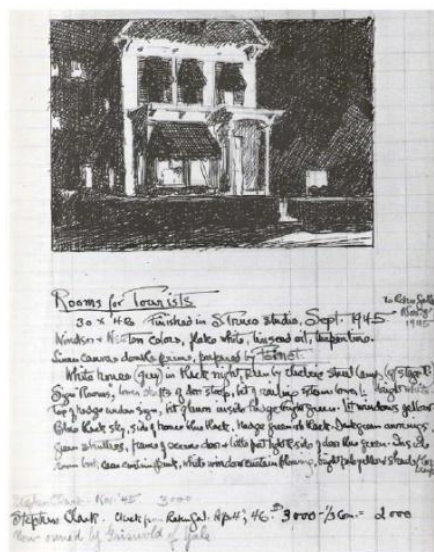 Rooms for Tourists
30 x Finished in S Truro studio, Sept. 1945
to Rehn Gallery
1945
Windsor + Newton colors, flake white, linseed oil, turpentine.
Linen canvas double prime, prepared by
White house (grey) in black night, seen by electric street lamp
Sign Rooms, lawn of door stoop, bit of railing bright white
Top of hedge under sign, bit of lawn inside hedge bright green. Lit windows yellow
Blue black sky, side of house blue black. Hedge greenish black. Dark green awnings,
green shutters, frame of screen door + little post light & side of door blue green. Inside
room white window curtain bright pale yellow shades
Stephen Clark Nov. '45 3000
Stephen Clark. Check from Rehn Gal. Apr 4, '46. 3000 - 1/3 Com. = 2000
Now owned by Griswold of Yale